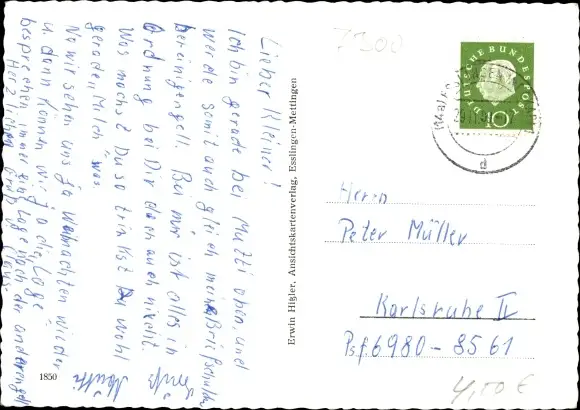 Lieber Kleiner!
Ich bin gerade bei Mutti oben, und
werde somit auch gleich meine Briefschulden
bereinigen gell. Bei mir ist alles in
Ordnung bei Dir doch auch nicht
Was machst Du so trinkst Du wohl
gerade Milch was
Na wir sehen uns ja Weihnachten wieder
u. dann können wir ja die Lage
besprechen, immer eine Lage nach der anderen gell
Herzlichen Gruß
Gruß Mutti
Erwin Higler, Ansichtskartenverlag, Esslingen-Mettingen
1850
7300
DEUTSCHE BUNDESPOST
10
d
Herrn
Peter Müller
Karlsruhe II
Psf. 6980-8561
4,50 €